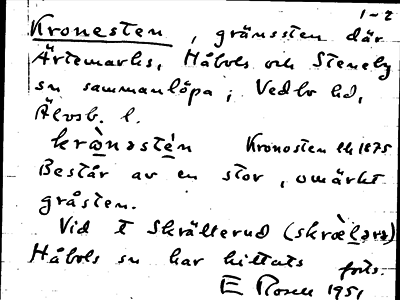 1-2
Kronesten, gränssten där
Ärtemarks, Håbols och Steneby
sn sammanlöpa; Vedbo hd,
Älvsb. l.
krὰ̱nəsté̱n Kronosten Ek 1875
Består av en stor, omärkt
gråsten.
Vid t Skrällerud (skræ̀lərə)
Håbols sn har hittats forts.
E Rosell 1951